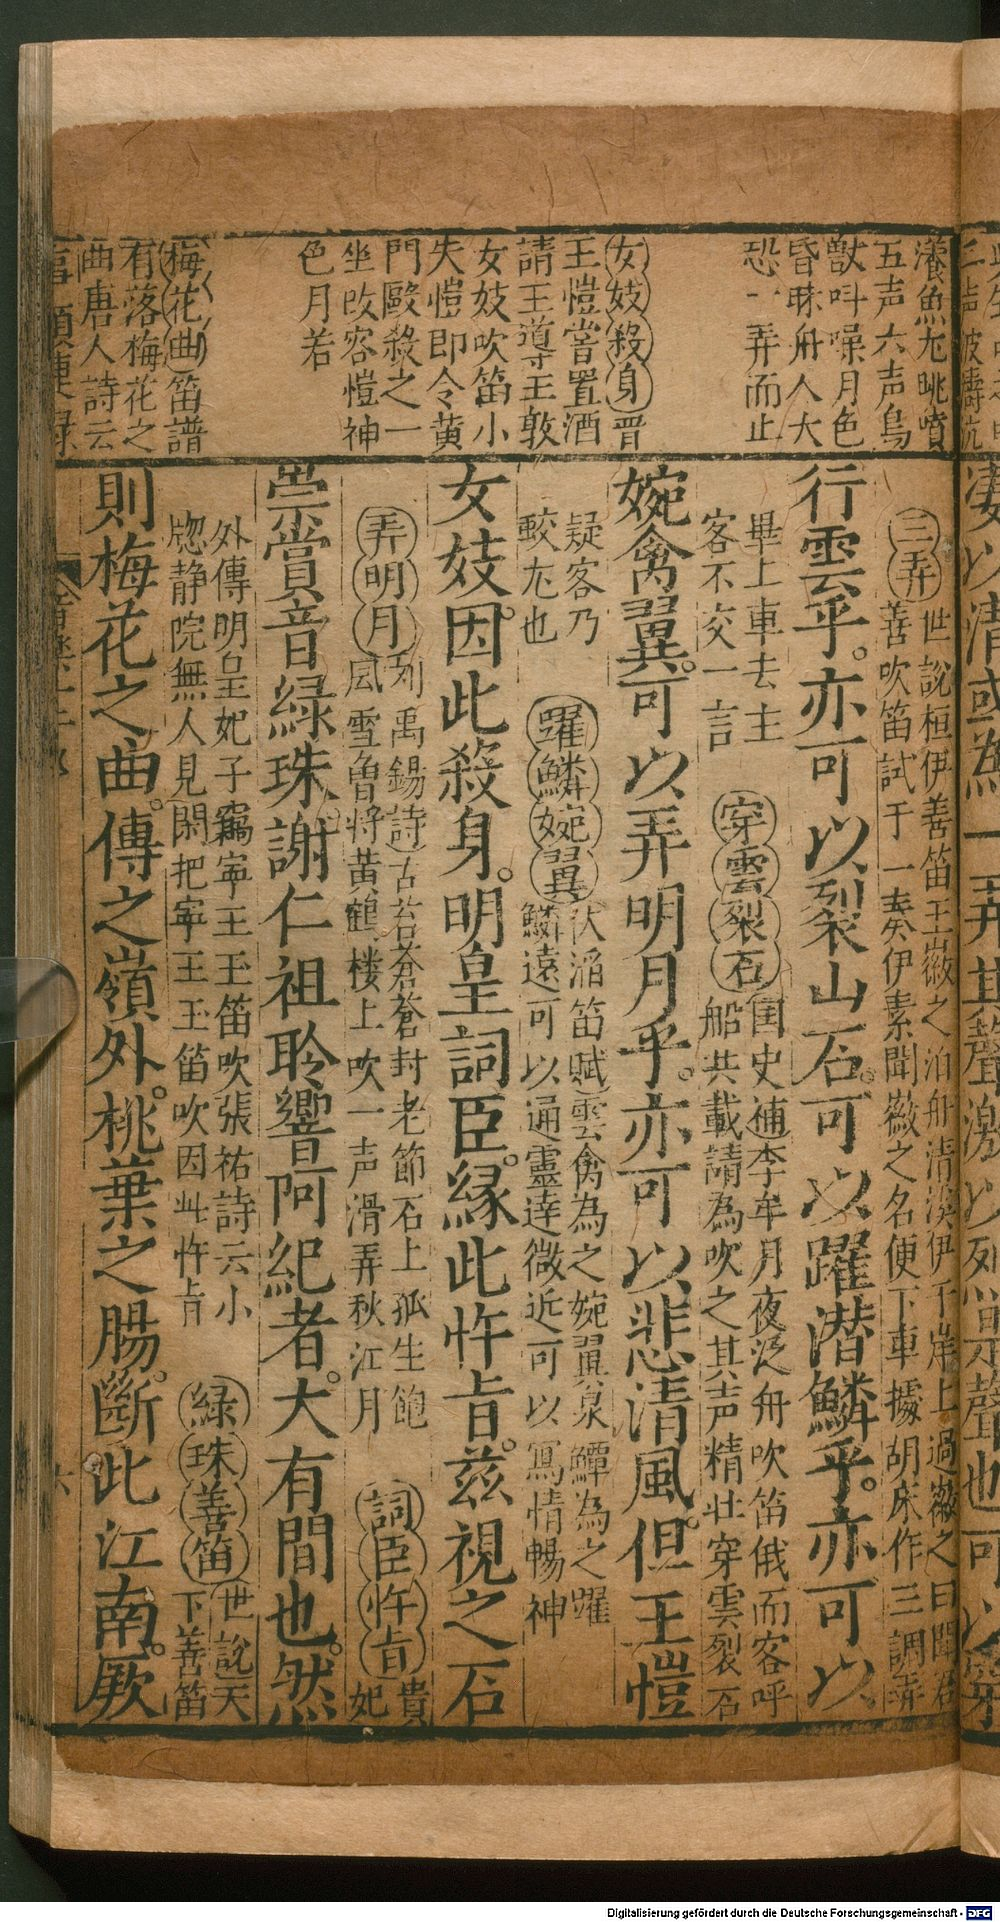 瀁魚尨眺噴
五声六声鳥
獸呌噪月色
昏昧舟人大
恐一弄而止
女妓殺身晋
王愷嘗置酒
請王導王敦
女妓吹笛小
失愷即令黄
門毆殺之一
坐改容愷神
色月若
梅花曲笛譜
有落梅花之
曲唐人詩云
三弄世説桓伊善笛王徽之泊舟清溪伊于岸上過徽之曰聞君
善吹笛試于一奏伊素聞徽之名便下車據胡床作三調弄
行雲乎亦可以裂山石可以躍潜鱗乎亦可以
畢上車去主
客不交一言
穿雲裂石国史補李牟月夜泛舟吹笛俄而客呼
船共載請為吹之其声精壮穿雲裂石
婉禽翼可以弄明月乎亦可以悲清風但王愷
疑客乃
蛟尨也
躍鱗婉翼伏滔笛賦雲禽為之婉翼泉鱏為之躍
鱗遠可以通靈達微近可以寫情暢神
女妓因此殺身明皇詞臣縁此忤旨兹視之石
弄明月刘禹錫詩古苔蒼蒼封老節石上孤生飽
風雪魯将黃鶴楼上吹一声滑弄秋江月
詞臣忤旨貴
妃
崇賞音緑珠謝仁祖聆響阿紀者大有間也然
外傳明皇妃子竊寕王玉笛吹張祐詩云小
牕静院無人見閑把寕王玉笛吹因此忤旨
緑珠善笛世説天
下善笛
則梅花之曲傳之嶺外桃葉之腸斷此江南厥
六
Digitalisierung gefördert durch die Deutsche Forschungsgemeinschaft - DFG